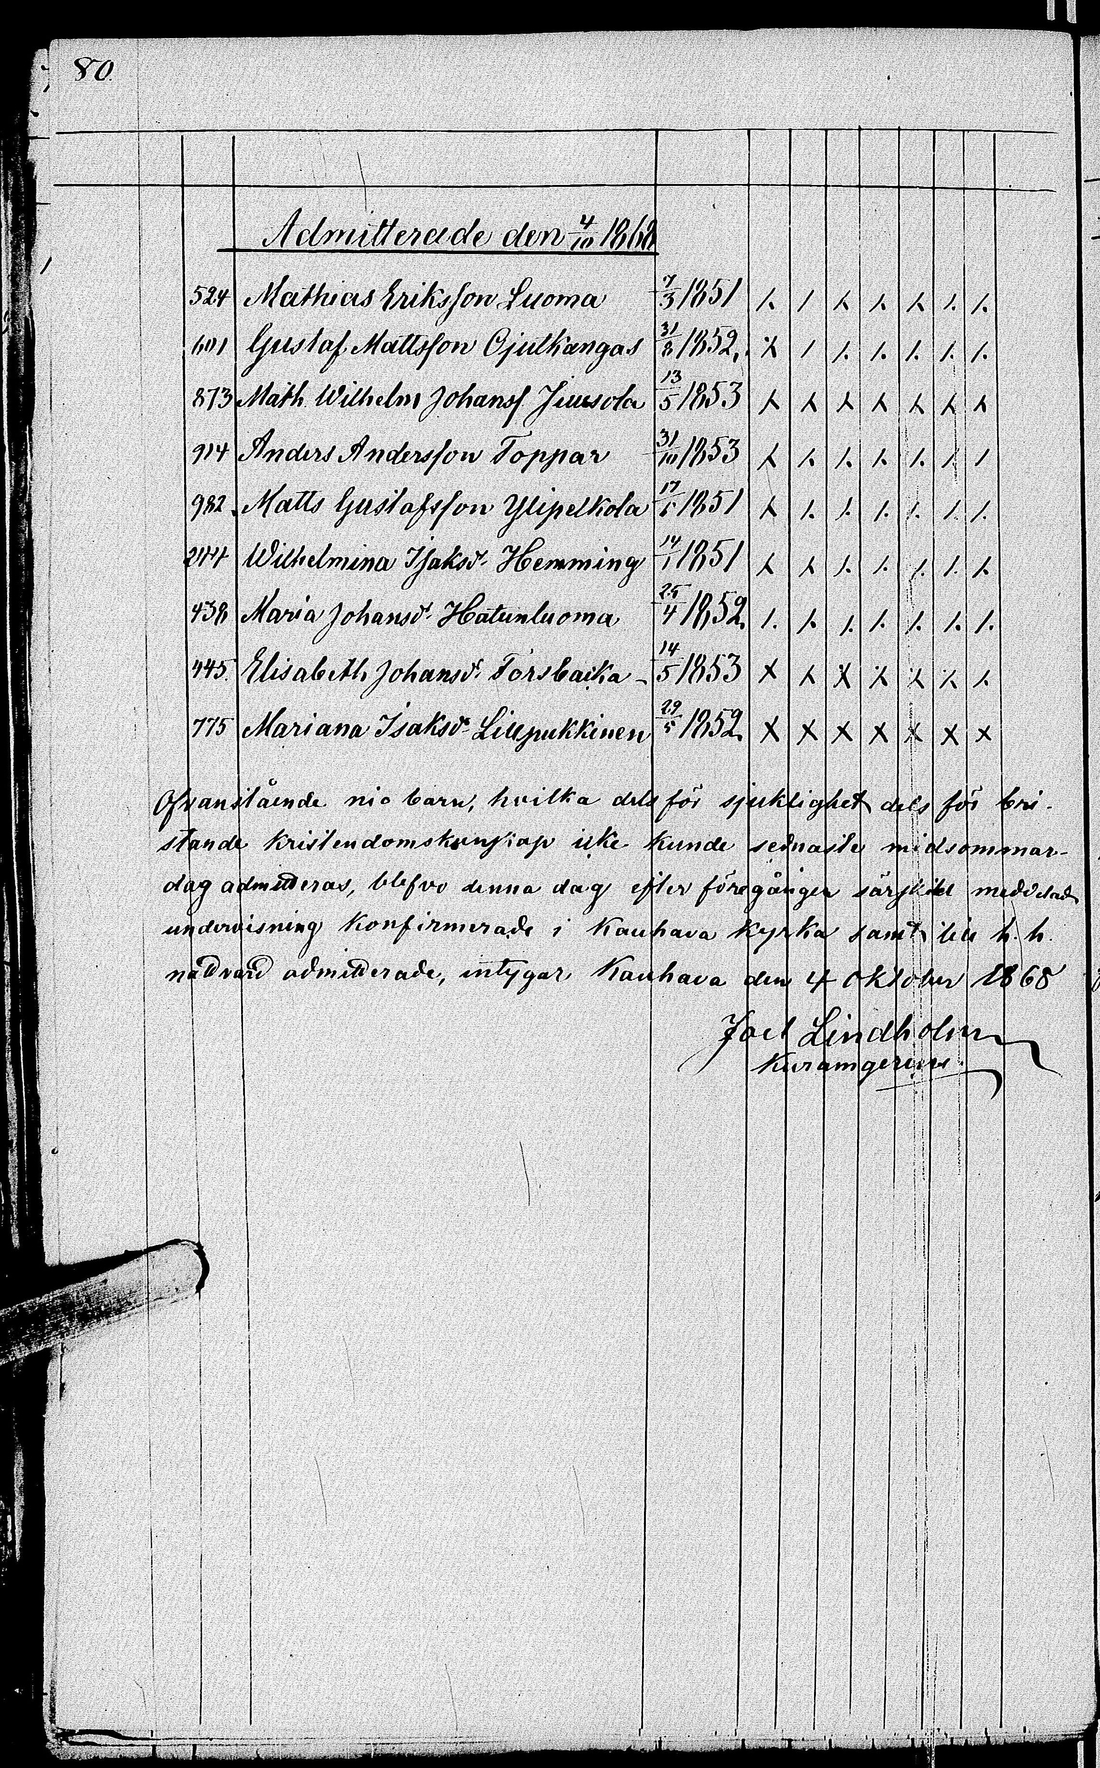 80
Admitterade den 4/10 1868
524 Mathias Eriksson Luoma 7/3 1851
601 Gustaf Mattsson Ojutkangas 31/8 1852.
873 Math. Wilhelm Johanss Juusola 13/5 1853
914 Anders Andersson Toppar 31/10 1853
982. Matts Gustafsson Ylipelkola 17/5 1851
244 Wilhelmina Isaksd. Hemming 14/1 1851
438 Maria Johansd. Hatunluoma 25/4 1852.
445. Elisabeth Johansd. Torsbacka 14/5 1853
775 Mariana Isaksd. Lillpukkinen 29/5 1852.
Ofvanstående nio barn, hvilka dels för sjuklighet dels för bri-
stande kristendomskunskap icke kunde sednaste midsommar-
dag admitteras, blefvo denna dag efter föregången särskild meddelad
undervisning konfirmerade i Kauhava kyrka samt till h. h.
nattvard admitterade, intygar Kauhava den 4 Oktober 1868
Joel Lindholm